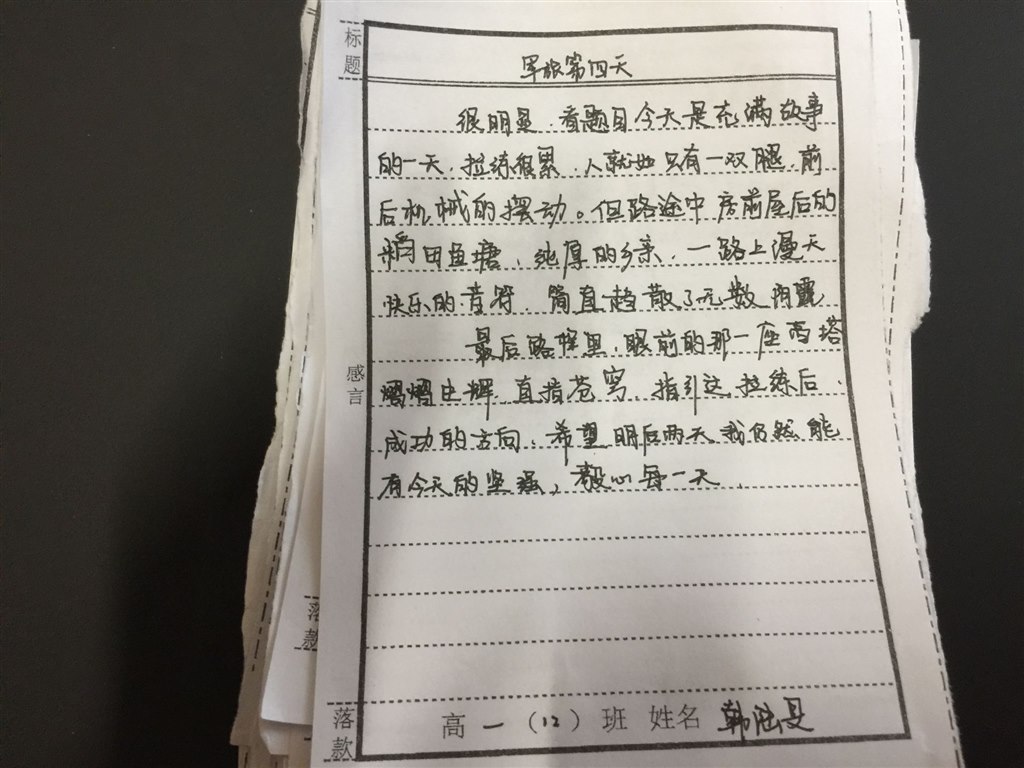 标题
军旅第四天
很明显,看题目今天是充满故事
的一天,拉练很累,人就如只有一双腿,前
后机械的摆动。但路途中房前屋后的
稻田鱼塘,纯厚的乡亲,一路上漫天
快乐的音符,简直趋散了无数阴霾
最后路程里,眼前的那一座西塔
熠熠生辉,直指苍穹,指引这拉练后
成功的方向,希望明后两天我仍然能
有今天的坚强,毅心每一天.
感言
落款
落款
高一(12)班 姓名 韩